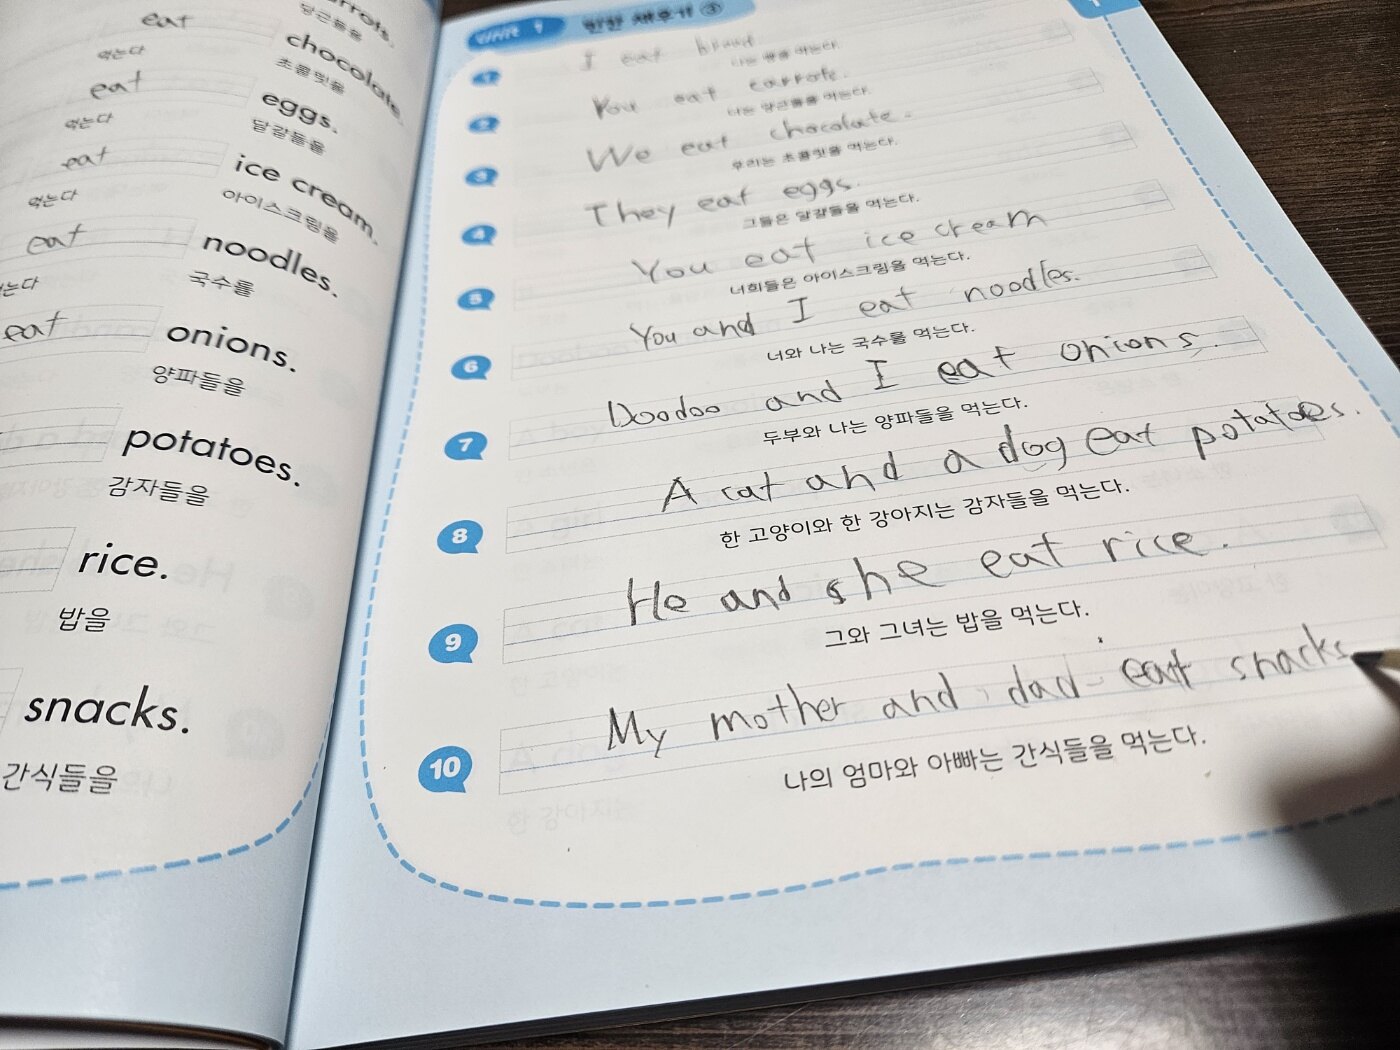 eat
먹는다
당근들을
eat chocolate.
먹는다 초콜릿을
eat eggs.
먹는다 달걀들을
eat ice cream.
아이스크림을
eat noodles.
국수를
onions.
양파들을
potatoes.
감자들을
rice.
밥을
snacks.
간식들을
Unit 1 빈칸 채우기 3
1 I eat bread
나는 빵을 먹는다.
2 You eat carrots.
너는 당근들을 먹는다.
3 We eat chocolate.
우리는 초콜릿을 먹는다.
4 They eat eggs.
그들은 달걀들을 먹는다.
5 You eat ice cream
너희들은 아이스크림을 먹는다.
6 You and I eat noodles.
너와 나는 국수를 먹는다.
7 Doodoo and I eat onions.
두부와 나는 양파들을 먹는다.
8 A cat and a dog eat potatoes.
한 고양이와 한 강아지는 감자들을 먹는다.
9 He and she eat rice.
그와 그녀는 밥을 먹는다.
10 My mother and dad eat snacks
나의 엄마와 아빠는 간식들을 먹는다.